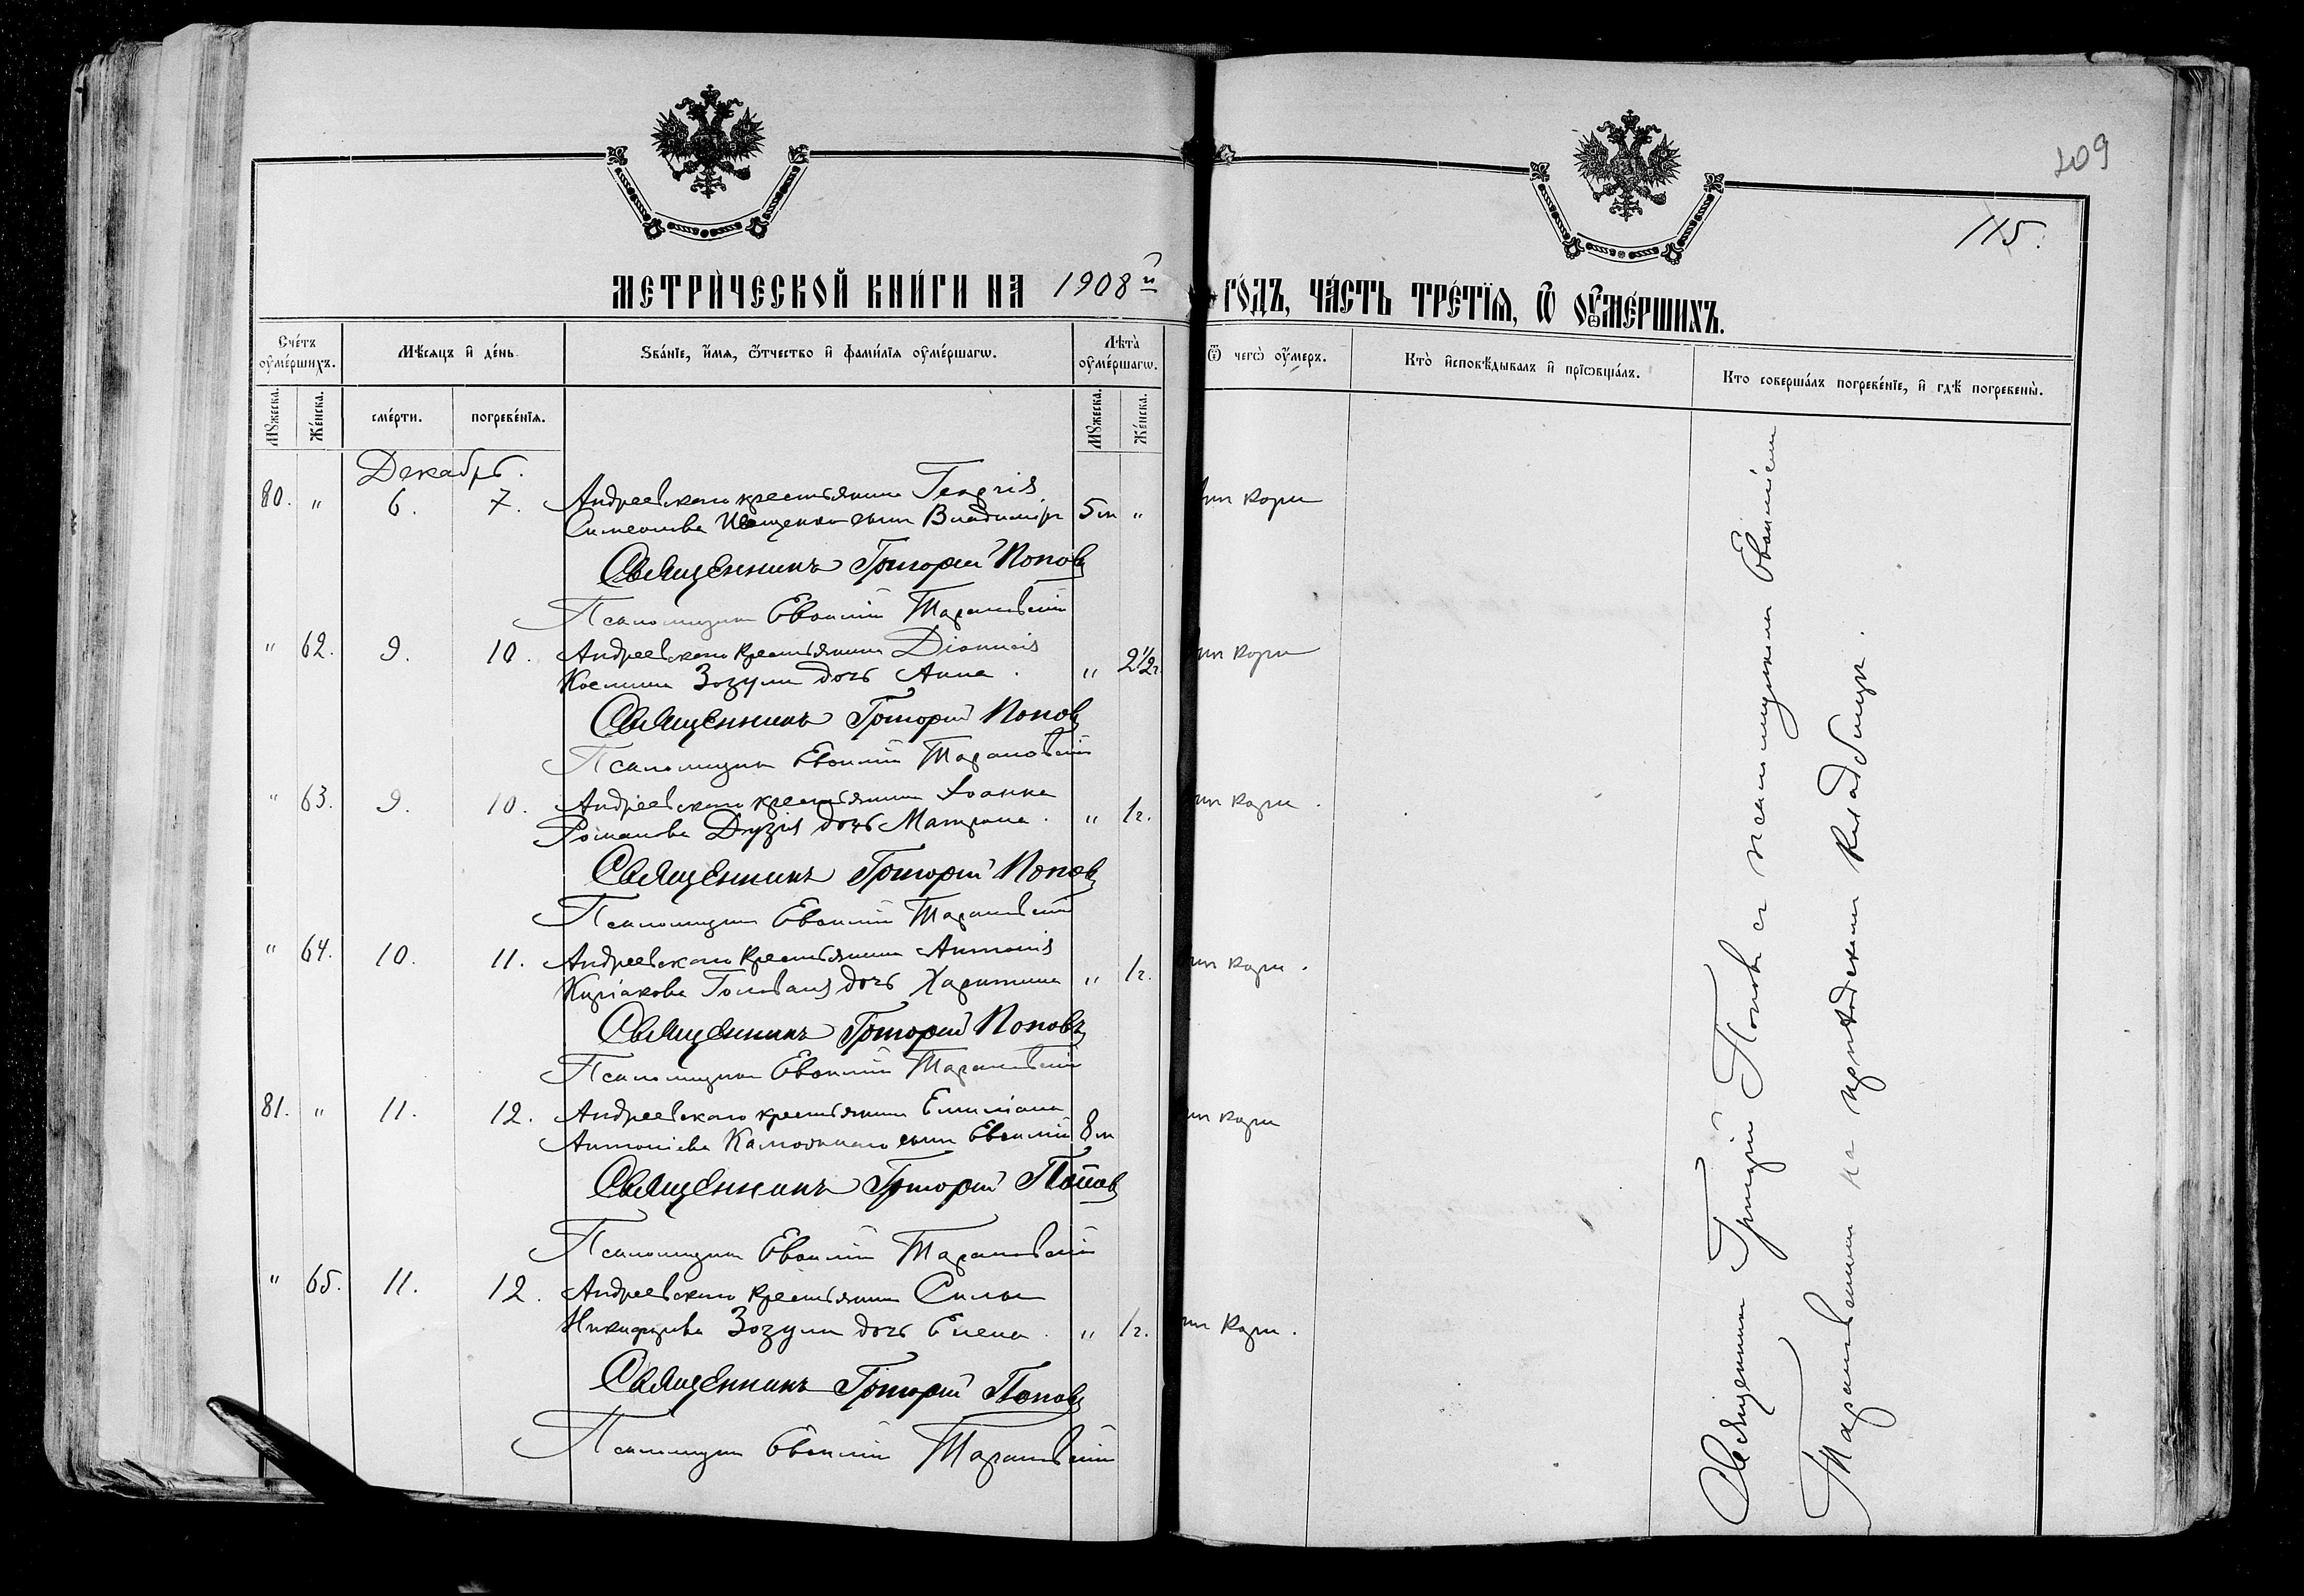 209
115.
МЕТРИЧЕСКОЙ КНИГИ НА 1908й ГОДЪ, ЧАСТЬ ТРЕТІЯ, Ѿ ОУМЕРШИХЪ.
Счетъ оумершихъ.
Мѣсяцъ и день
Званіе, имя, ѿчество и фамилія оумершагѡ.
Лѣта оумершагѡ.
Ѿ чегѡ оумеръ.
Кто исповѣдывалъ и пріѡбщалъ.
Кто совершалъ погребеніе, и гдѣ погребены.
Мужеска.
Женска.
смерти.
погребенія.
Мужеска.
Женска.
Декабрь.
80. " 6. 7. Андреевскаго крестьянина Георгія
Симеонова Иващенко сынъ Владиміръ 5 м " кори
Священникъ Григорій Поповъ
Псаломщикъ Евѳимій Тарановскій
" 62. 9. 10. Андреевскаго крестьянина Діонисія
Космина Зозули дочь Анна. " 2½г. кори
Священникъ Григорій Поповъ
Псаломщикъ Евѳимій Тарановскій
" 63. 9. 10. Андреевскаго крестьянина Іоанна
Романова Дузія дочь Матрона. " 1г. кори.
Священникъ Григорій Поповъ
Псаломщикъ Евѳимій Тарановскій
" 64. 10. 11. Андреевскаго крестьянина Антонія
Киріакова Голованя дочь Харитина " 1г. кори.
Священникъ Григорій Поповъ
Псаломщикъ Евѳимій Тарановскій
81. " 11. 12. Андреевскаго крестьянина Емиліана
Антоніева сынъ Евѳимій 8 м кори
Священникъ Григорій Поповъ
Псаломщикъ Евѳимій Тарановскій
" 65. 11. 12. Андреевскаго крестьянина Силы
Никифорова Зозули дочь Елена. " 1г. кори.
Священникъ Григорій Поповъ
Псаломщикъ Евѳимій Тарановскій
Священникъ Григорій Поповъ съ псаломщикомъ Евѳиміемъ
Тарановскимъ на приходскомъ кладбищѣ.